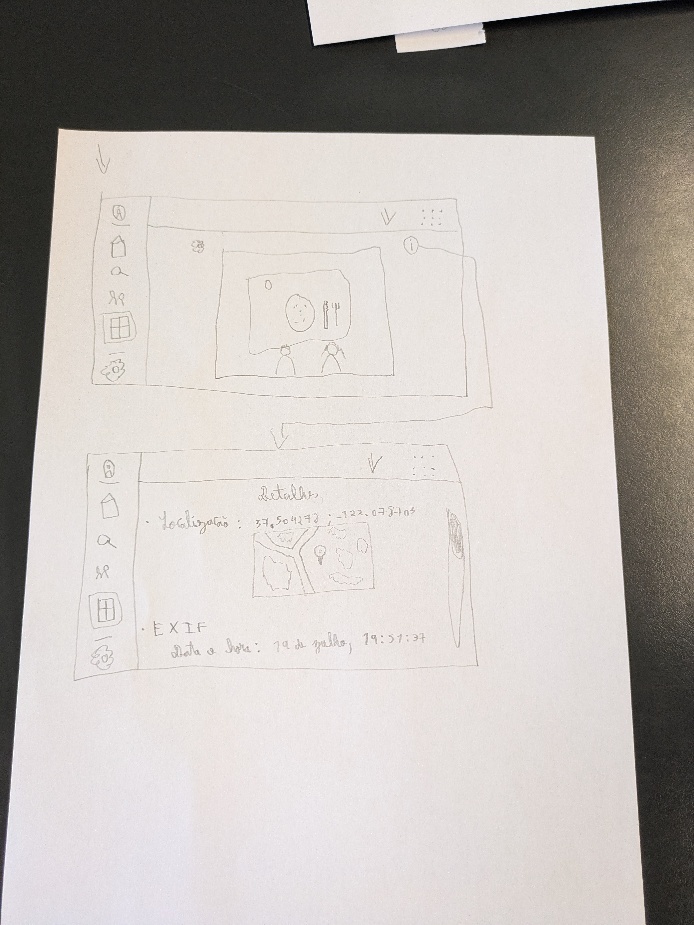 Detalhes
• Localização : 37.504272 ; -122.078105
• EXIF
Data e hora: 19 de julho, 19:51:37